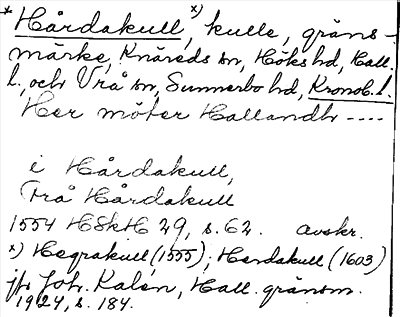 * Hårdakull, x) kulle, gräns-
märke, Knäreds sn, Höks hd, Hall.
l., och Vrå sn, Sunnerbo hd, Kronob. l.
Her möter Hallandh ----
i Hårdakull,
Frå Hårdakull
1554 HSkH 29, s. 62. avskr.
x) Hegrakull (1555); Herdakull (1603)
jfr Joh. Kalén, Hall. gränsm.
1924, s. 184.